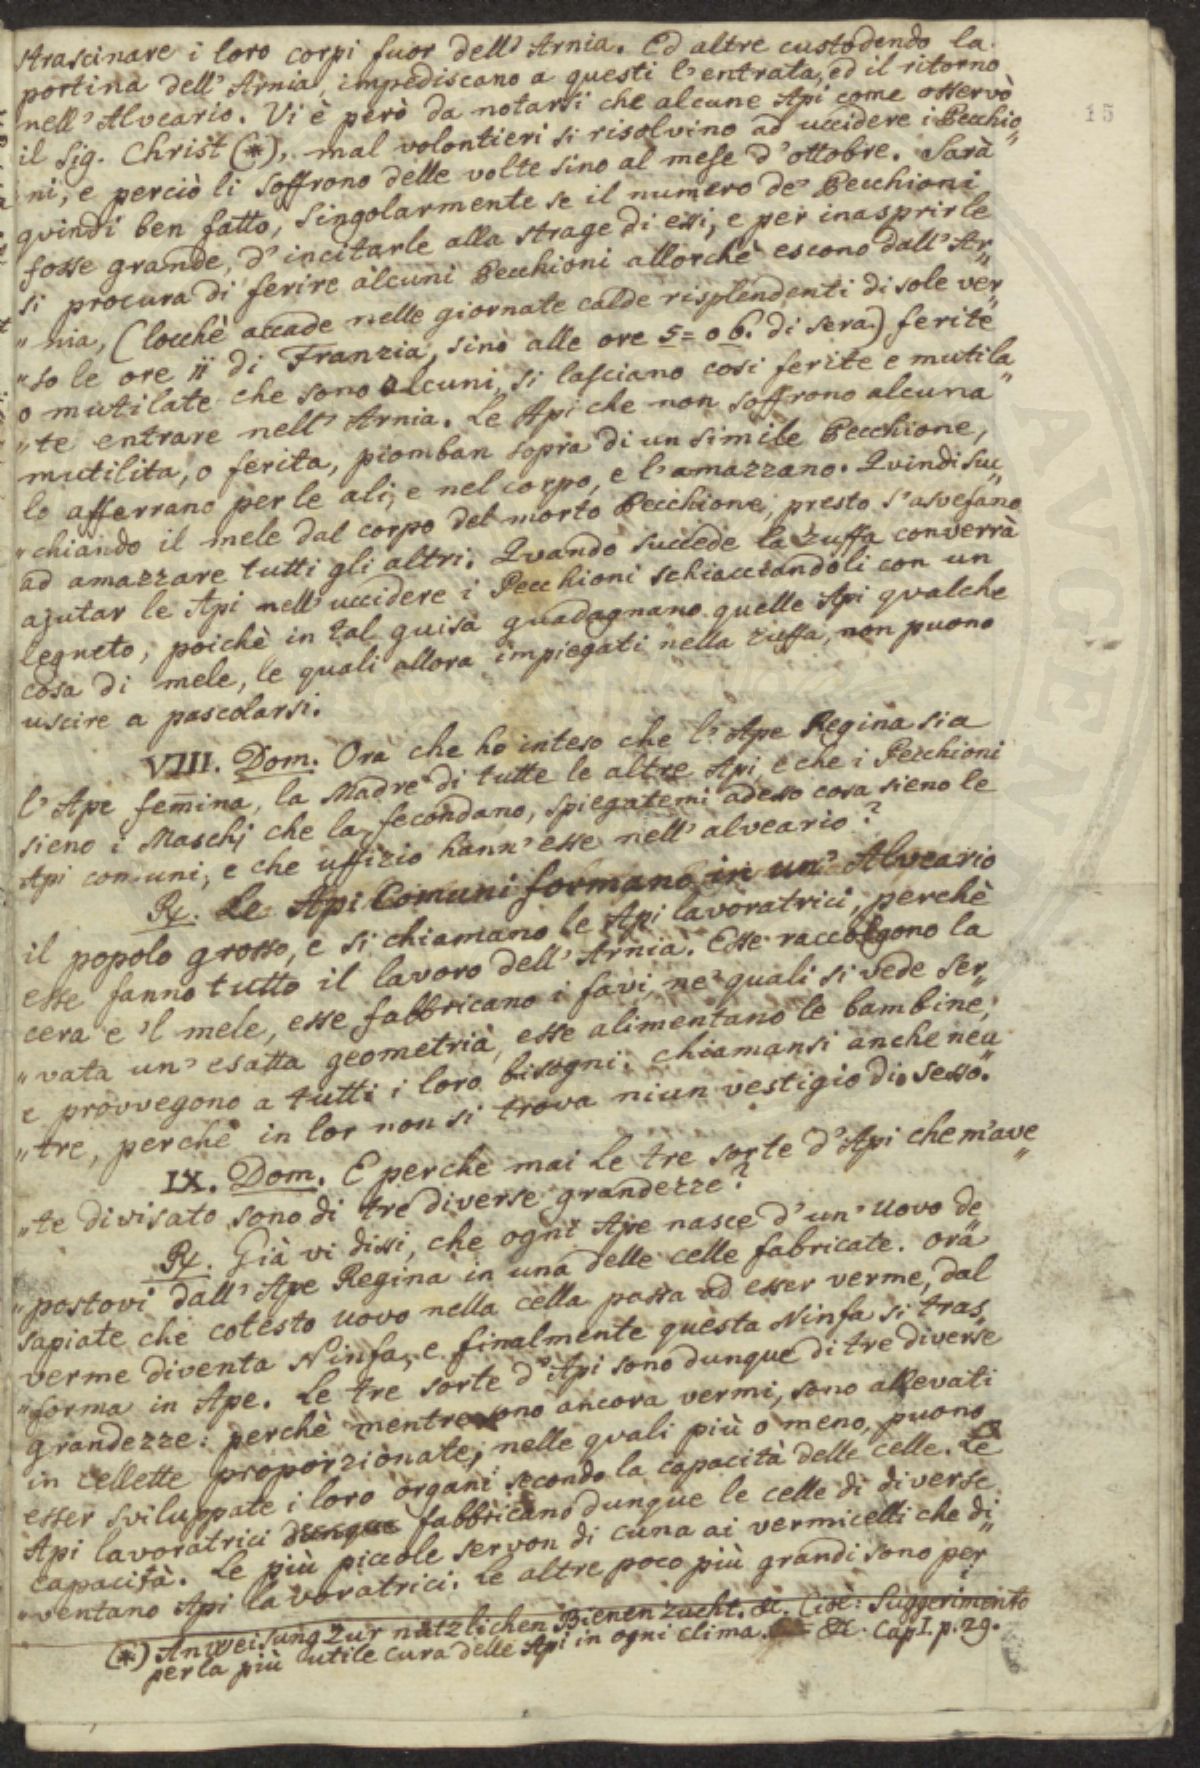 15
strascinare i loro corpi fuor dell' Arnia. Ed altre custodendo la
portina dell' Arnia, impediscano a questi l'entrata, ed il ritorno
nell' Alveario. Vi è però da notarsi che alcune Api come osservò
il Sig. Christ (*), mal volontieri si risolvino ad uccidere i Pecchio„
ni, e perciò li soffrono delle volte sino al mese d'ottobre. Sarà
quindi ben fatto, singolarmente se il numero de' Pecchioni
fosse grande, d'incitarle alla strage di essi, e per inasprirle
si procura di ferire alcuni Pecchioni allorchè escono dall' Ar„
„nia, (locchè accade nelle giornate calde risplendenti di sole ver„
„so le ore 11 di Franzia, sino alle ore 5= o 6. di sera.) ferite
o mutilate che sono alcuni, si lasciano cosi ferite e mutila„
„te entrare nell' Arnia. Le Api che non soffrono alcuna
mutilita, o ferita, piomban sopra di un simile Pecchione,
lo afferrano per le ali, e nel corpo, e l'amazzano. Quindi suc„
„chiando il mele dal corpo del morto Pecchione, presto s'asvefano
ad amazzare tutti gli altri. Quando succede la zuffa converrà
ajutar le Api nell' uccidere i Pecchioni schiacciandoli con un
legneto, poichè in tal guisa guadagnano quelle Api qualche
cosa di mele, le quali allora impiegati nella zuffa, non puono
uscire a pascolarsi.
VIII. Dom. Ora che ho inteso che l' Ape Regina sia
l' Ape fem̄ina, la Madre di tutte le altre Api, e che i Pecchioni
sieno i Maschj che la fecondano, spiegatemi adesso cosa sieno le
Api comuni, e che uffizio hann' esse nell' alveario?
R. Le Api Comuni formano in un' Alveario
il popolo grosso, e si chiamano le Api lavoratrici, perchè
esse fanno tutto il lavoro dell' Arnia. Esse raccolgono la
cera e 'l mele, esse fabbricano i favi, ne' quali si vede ser„
„vata un' esatta geometrià, esse alimentano le bambine,
e provvegono a tutti i loro bisogni: chiamansi anche neu„
„tre, perchè in lor non si trova niun vestigio di sesso.
IX. Dom. E perche mai le tre sorte d'Api che m'ave„
„te divisato sono di tre diverse grandezze?
R. Già vi dissi, che ogni Ape nasce d'un' Uovo de„
„postovi dall' Ape Regina in una delle celle fabricate. ora
sapiate che cotesto Uovo nella cella passa ad esser verme, dal
verme diventa Ninfa, e finalmente questa Ninfa si tras„
„forma in Ape. Le tre sorte d' Api sono dunque di tre diverse
grandezze: perchè mentre sono ancora vermi, sono allevati
in cellette proporzionate, nelle quali più o meno, puono
esser sviluppate i loro organi secondo la capacità delle celle. Le
Api lavoratrici dunque fabbricano dunque le celle di diverse
capacità. Le più piccole servon di cuna ai vermicelli che di„
„ventano Api lavoratrici. Le altre poco più grandi sono per
(*) Anweisung zur nützlichen Bienenzucht. &c. Cioè: Suggerimento
per la più utile cura delle Api in ogni clima. &c. Cap I. p. 29.